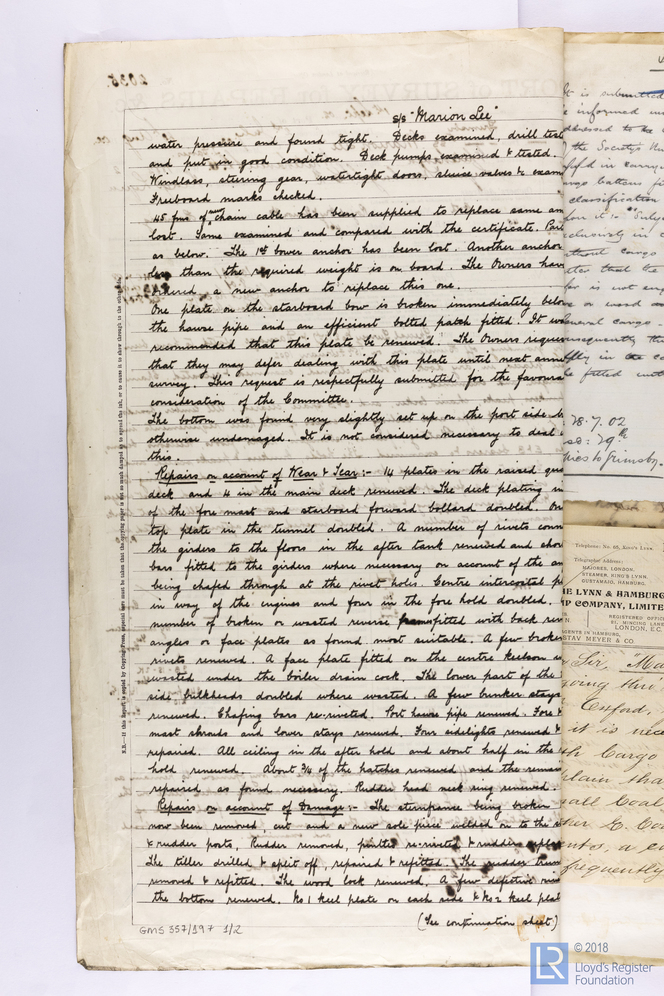 2035.
s/s "Marion Lee"
water pressure and found tight. Decks examined, drill test
and put in good condition. Deck pumps examined & tested.
Windlass, steering gear, watertight doors, sluice valves &c exam
Freeboard marks checked.
45 fms of chain cable has been supplied to replace same am
lost. Same examined and compared with the certificate. Part
as below. The 1st bower anchor has been lost. Another anchor
less than the required weight is on board. The Owners hav
ordered a new anchor to replace this one.
One plate on the starboard bow is broken immediately belo
the hawse pipe and an efficient bolted patch fitted. It w
recommended that this plate be renewed. The Owners reques
that they may defer dealing with this plate until next annu
survey. This request is respectfully submitted for the favoura
consideration of the Committee.
The bottom was found very slightly set up on the port side b
otherwise undamaged. It is not considered necessary to deal
this.
Repairs on account of Wear & Tear:- 14 plates in the raised qua
deck and 4 in the main deck renewed. The deck plating in
of the fore mast and starboard forward bollard doubled. On
top plate in the tunnel doubled. A number of rivets conn
the girders to the floors in the after tank renewed and
bars fitted to the girders where necessary on account of the an
being chafed through at the rivet holes. Centre intercostal p
in way of the engines and four in the fore hold doubled.
number of broken or wasted reverse fitted with back rev
angles or face plates as found most suitable. A few broke
rivets renewed. A face plate fitted on the centre keelson w
wasted under the boiler drain cock. The lower part of the
side bulkheads doubled where wasted. A few bunker stays
renewed. Chafing bars re-riveted. Port hawse pipe renewed. Fore &
mast shrouds and lower stays renewed. Four sidelights renewed &
repaired. All ceiling in the after hold and about half in the
hold renewed. About 3/4 of the hatches renewed and the remai
repaired as found necessary. Rudder head neck ring renewed.
Repairs on account of Damage:- The sternframe being broken
now been removed, cut and a new sole piece welded on to the
& rudder posts, Rudder removed, pintles re-riveted & rudder
The tiller drilled & split off, repaired & refitted. The rudder trun
removed & refitted. The wood lock renewed. A few defective
the bottom renewed. No 1 keel plate on each side & No 2 keel plat
(See continuation sheet)
GMS 357/197 1/2
N.B.—If this Report is copied by Copying-Press, especial care must be taken that the copying paper is not so much damped as to spread the ink, or to cause it to show through to the other side.
It is submitted
informed
addressed to the
the Society's
classification
28.7.02
Grimsby.
Telegraphic Address:
MAJORES, LONDON.
STEAMER, KING'S LYNN.
GUSTAMAJO, HAMBURG.
HE LYNN & HAMBURG
IP COMPANY, LIMITE
REGISTERED OFFIC
MINCING LANE
LONDON, E.C.
AGENTS IN HAMBURG,
STAV MEYER & CO
Sir, "Ma
going thro'
Cargo
all Coal
frequently
LR
© 2018
Lloyd's Register
Foundation